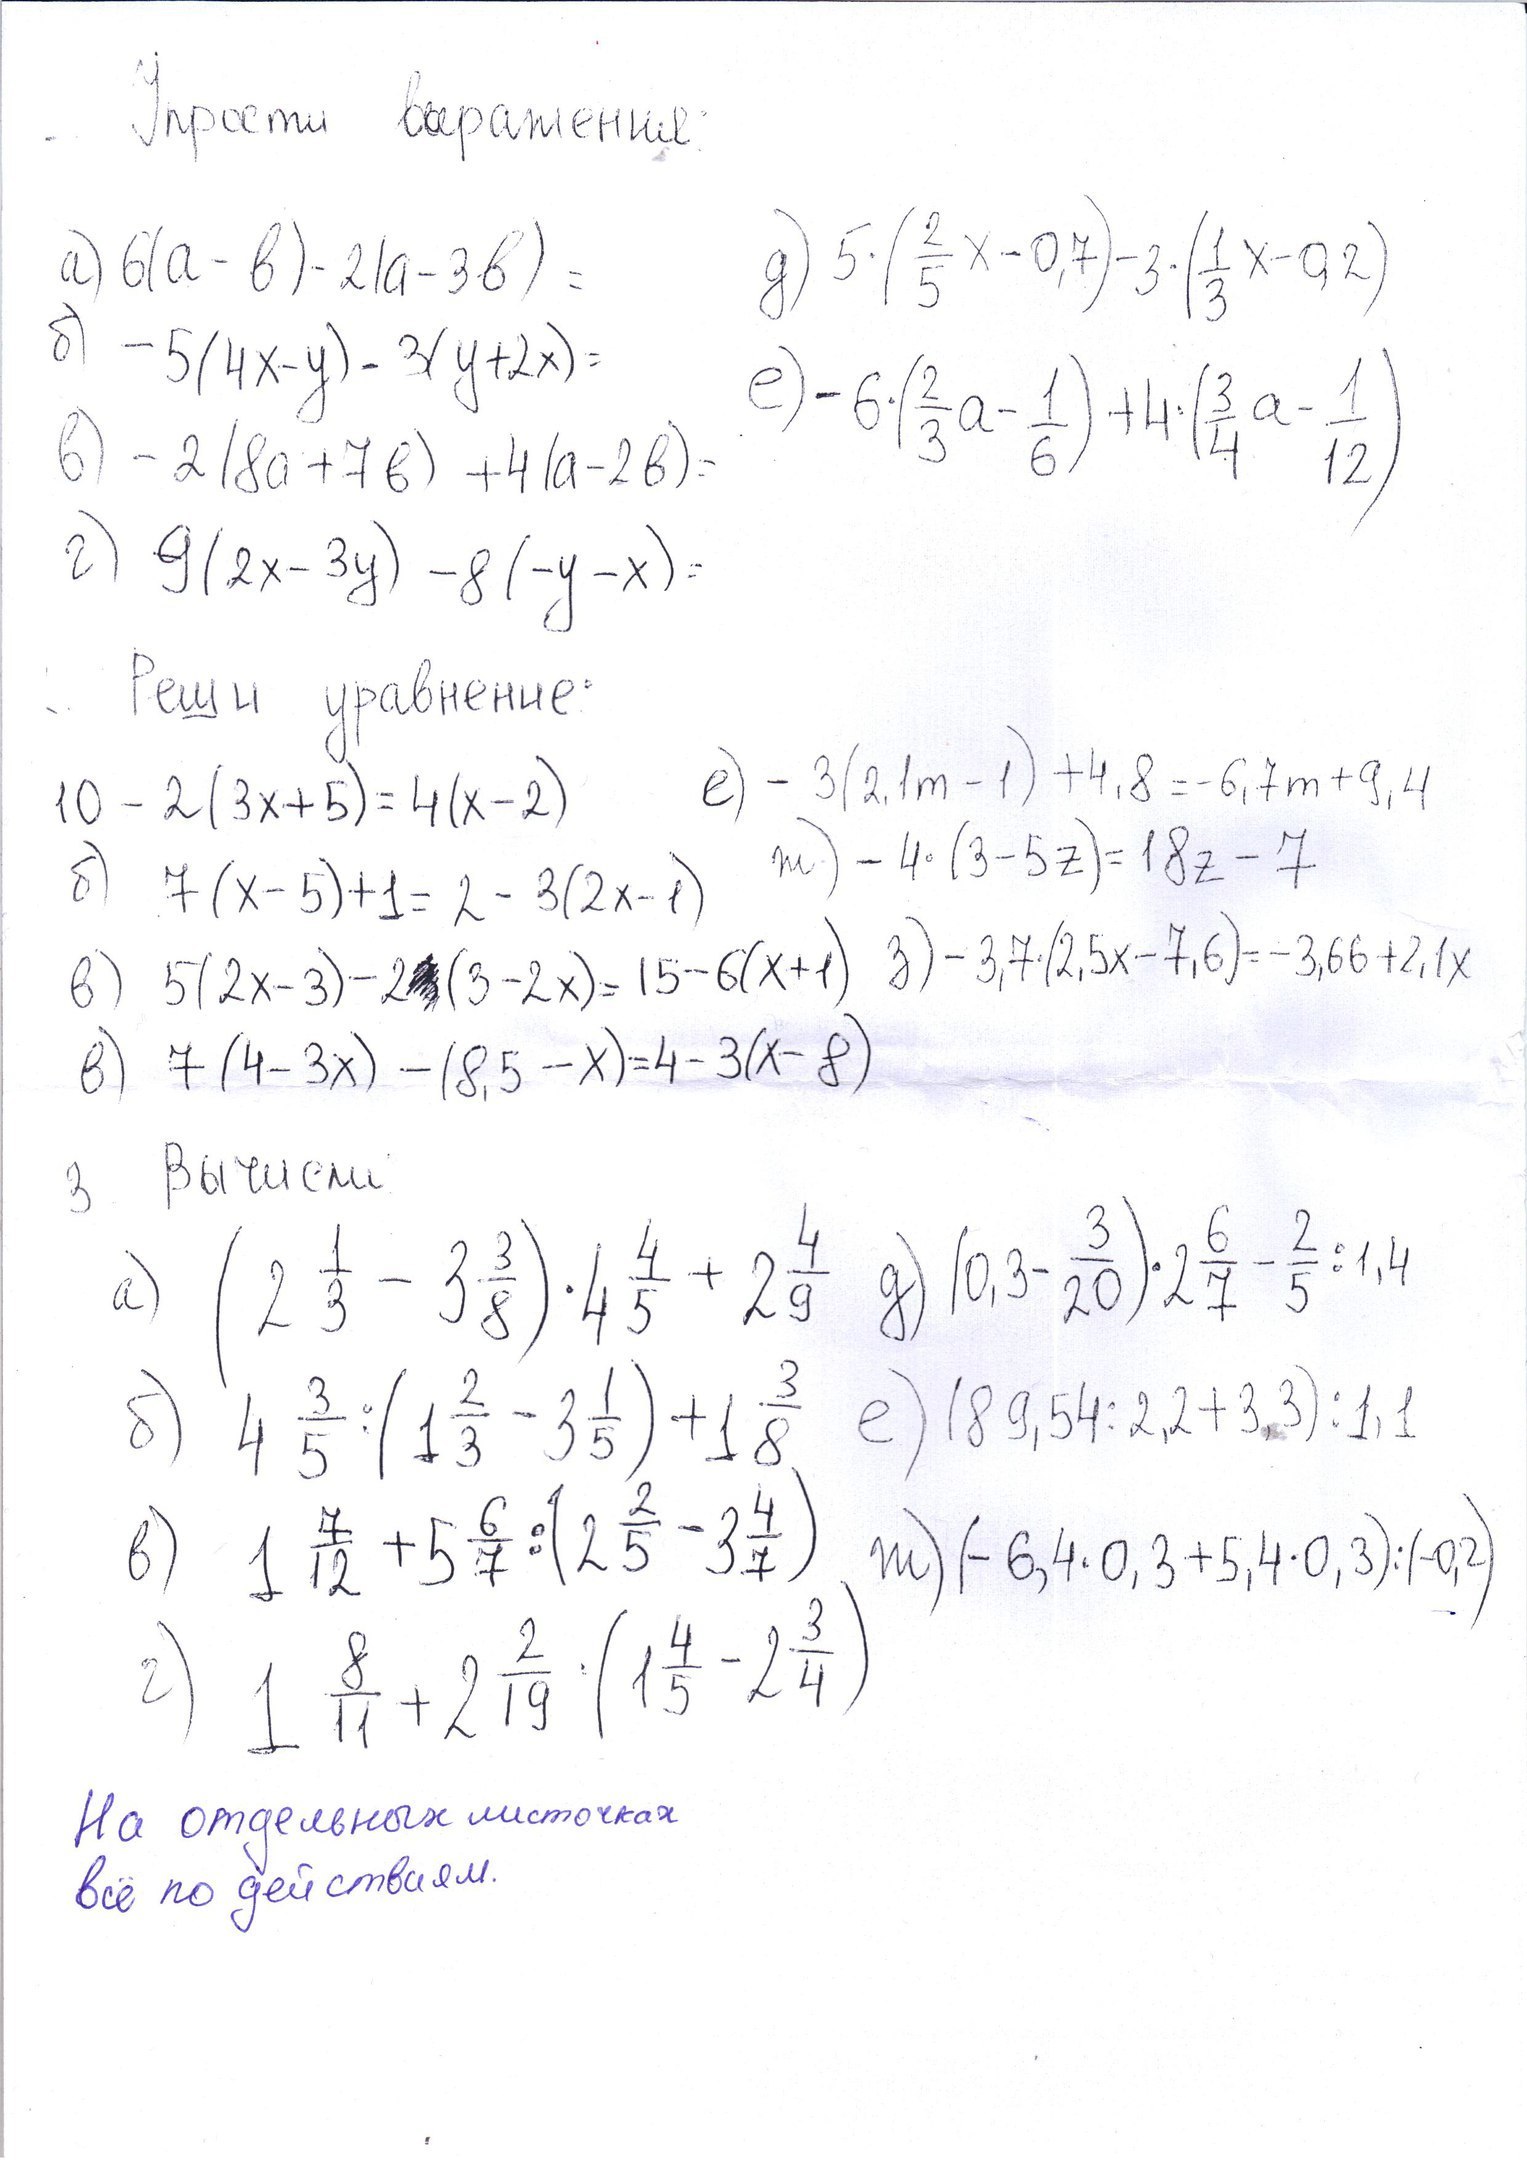 Упрости выражения:
а) 6(а - в) - 2(а - 3в) =
б) - 5(4х - у) - 3(у + 2х) =
в) - 2(8а + 7в) + 4(а - 2в) =
г) 9(2х - 3у) - 8(-у - х) =
д) 5·(2/5 х - 0,7) - 3·(1/3 х - 0,2)
е) - 6·(2/3 а - 1/6) + 4·(3/4 а - 1/12)
Реши уравнение:
10 - 2(3х + 5) = 4(х - 2)
б) 7(х - 5) + 1 = 2 - 3(2х - 1)
в) 5(2х - 3) - 2(3 - 2х) = 15 - 6(х + 1)
в) 7(4 - 3х) - (8,5 - х) = 4 - 3(х - 8)
е) - 3(2,1m - 1) + 4,8 = -6,7m + 9,4
ж) - 4·(3 - 5z) = 18z - 7
з) - 3,7·(2,5х - 7,6) = -3,66 + 2,1х
3 Вычисли
а) (2 1/3 - 3 3/8)·4 4/5 + 2 4/9
б) 4 3/5 : (1 2/3 - 3 1/5) + 1 3/8
в) 1 7/12 + 5 6/7 : (2 2/5 - 3 4/7)
г) 1 8/11 + 2 2/19 · (1 4/5 - 2 3/4)
д) (0,3 - 3/20)·2 6/7 - 2/5 : 1,4
е) (89,54 : 2,2 + 3,3) : 1,1
ж) (- 6,4·0,3 + 5,4·0,3) : (-0,2)
На отдельных листочках
всё по действиям.